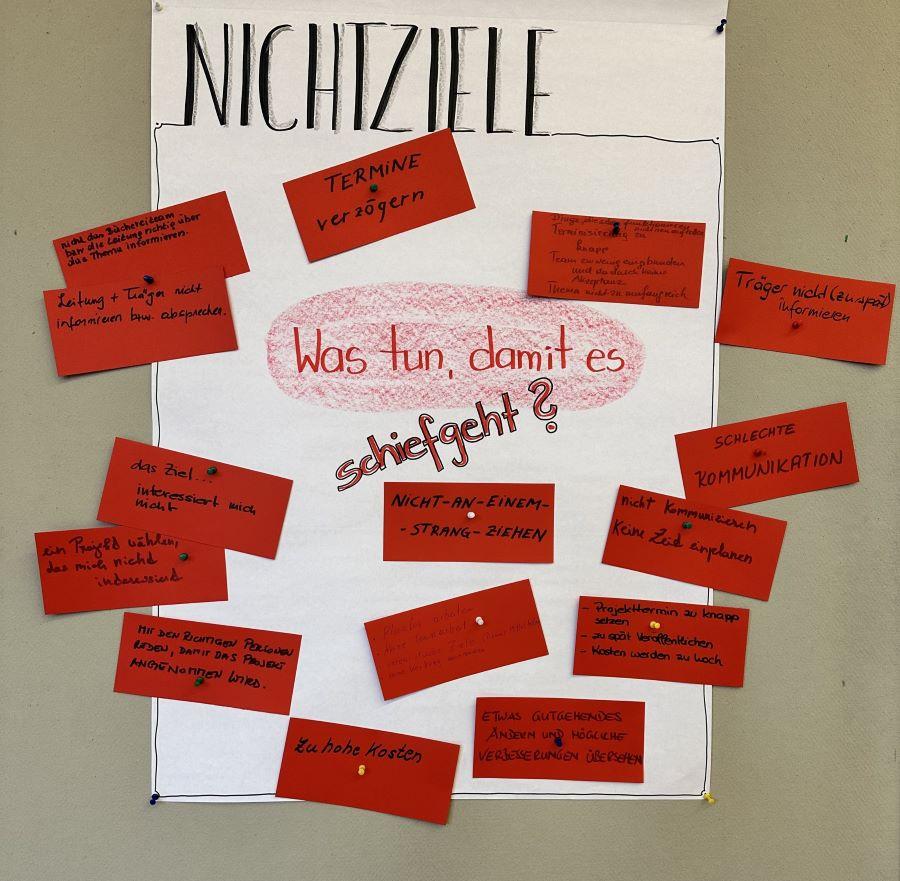 NICHTZIELE
TERMINE
verzögern
nicht das Büchereiteam
bzw die Leitung richtig über
das Thema informieren.
Leitung + Träger nicht
informieren bzw. absprechen.
Terminisierung zu
knapp
Team zu wenig eingebunden
und dadurch keine
Akzeptanz
Thema nicht zu umfangreich
Träger nicht (zu spät)
informieren
Was tun, damit es
schiefgeht?
SCHLECHTE
KOMMUNIKATION
das Ziel...
interessiert mich
nicht
NICHT-AN-EINEM-
-STRANG-ZIEHEN
nicht Kommunizieren
Keine Zeit einplanen
ein Projekt wählen,
das mich nicht
interessiert
MIT DEN RICHTIGEN PERSONEN
REDEN, DAMIT DAS PROJEKT
ANGENOMMEN WIRD.
- Projekttermin zu knapp
setzen
- zu spät Veröffentlichen
- Kosten werden zu hoch
ETWAS GUTGEHENDES
ÄNDERN UND MÖGLICHE
VERBESSERUNGEN ÜBERSEHEN
Zu hohe Kosten